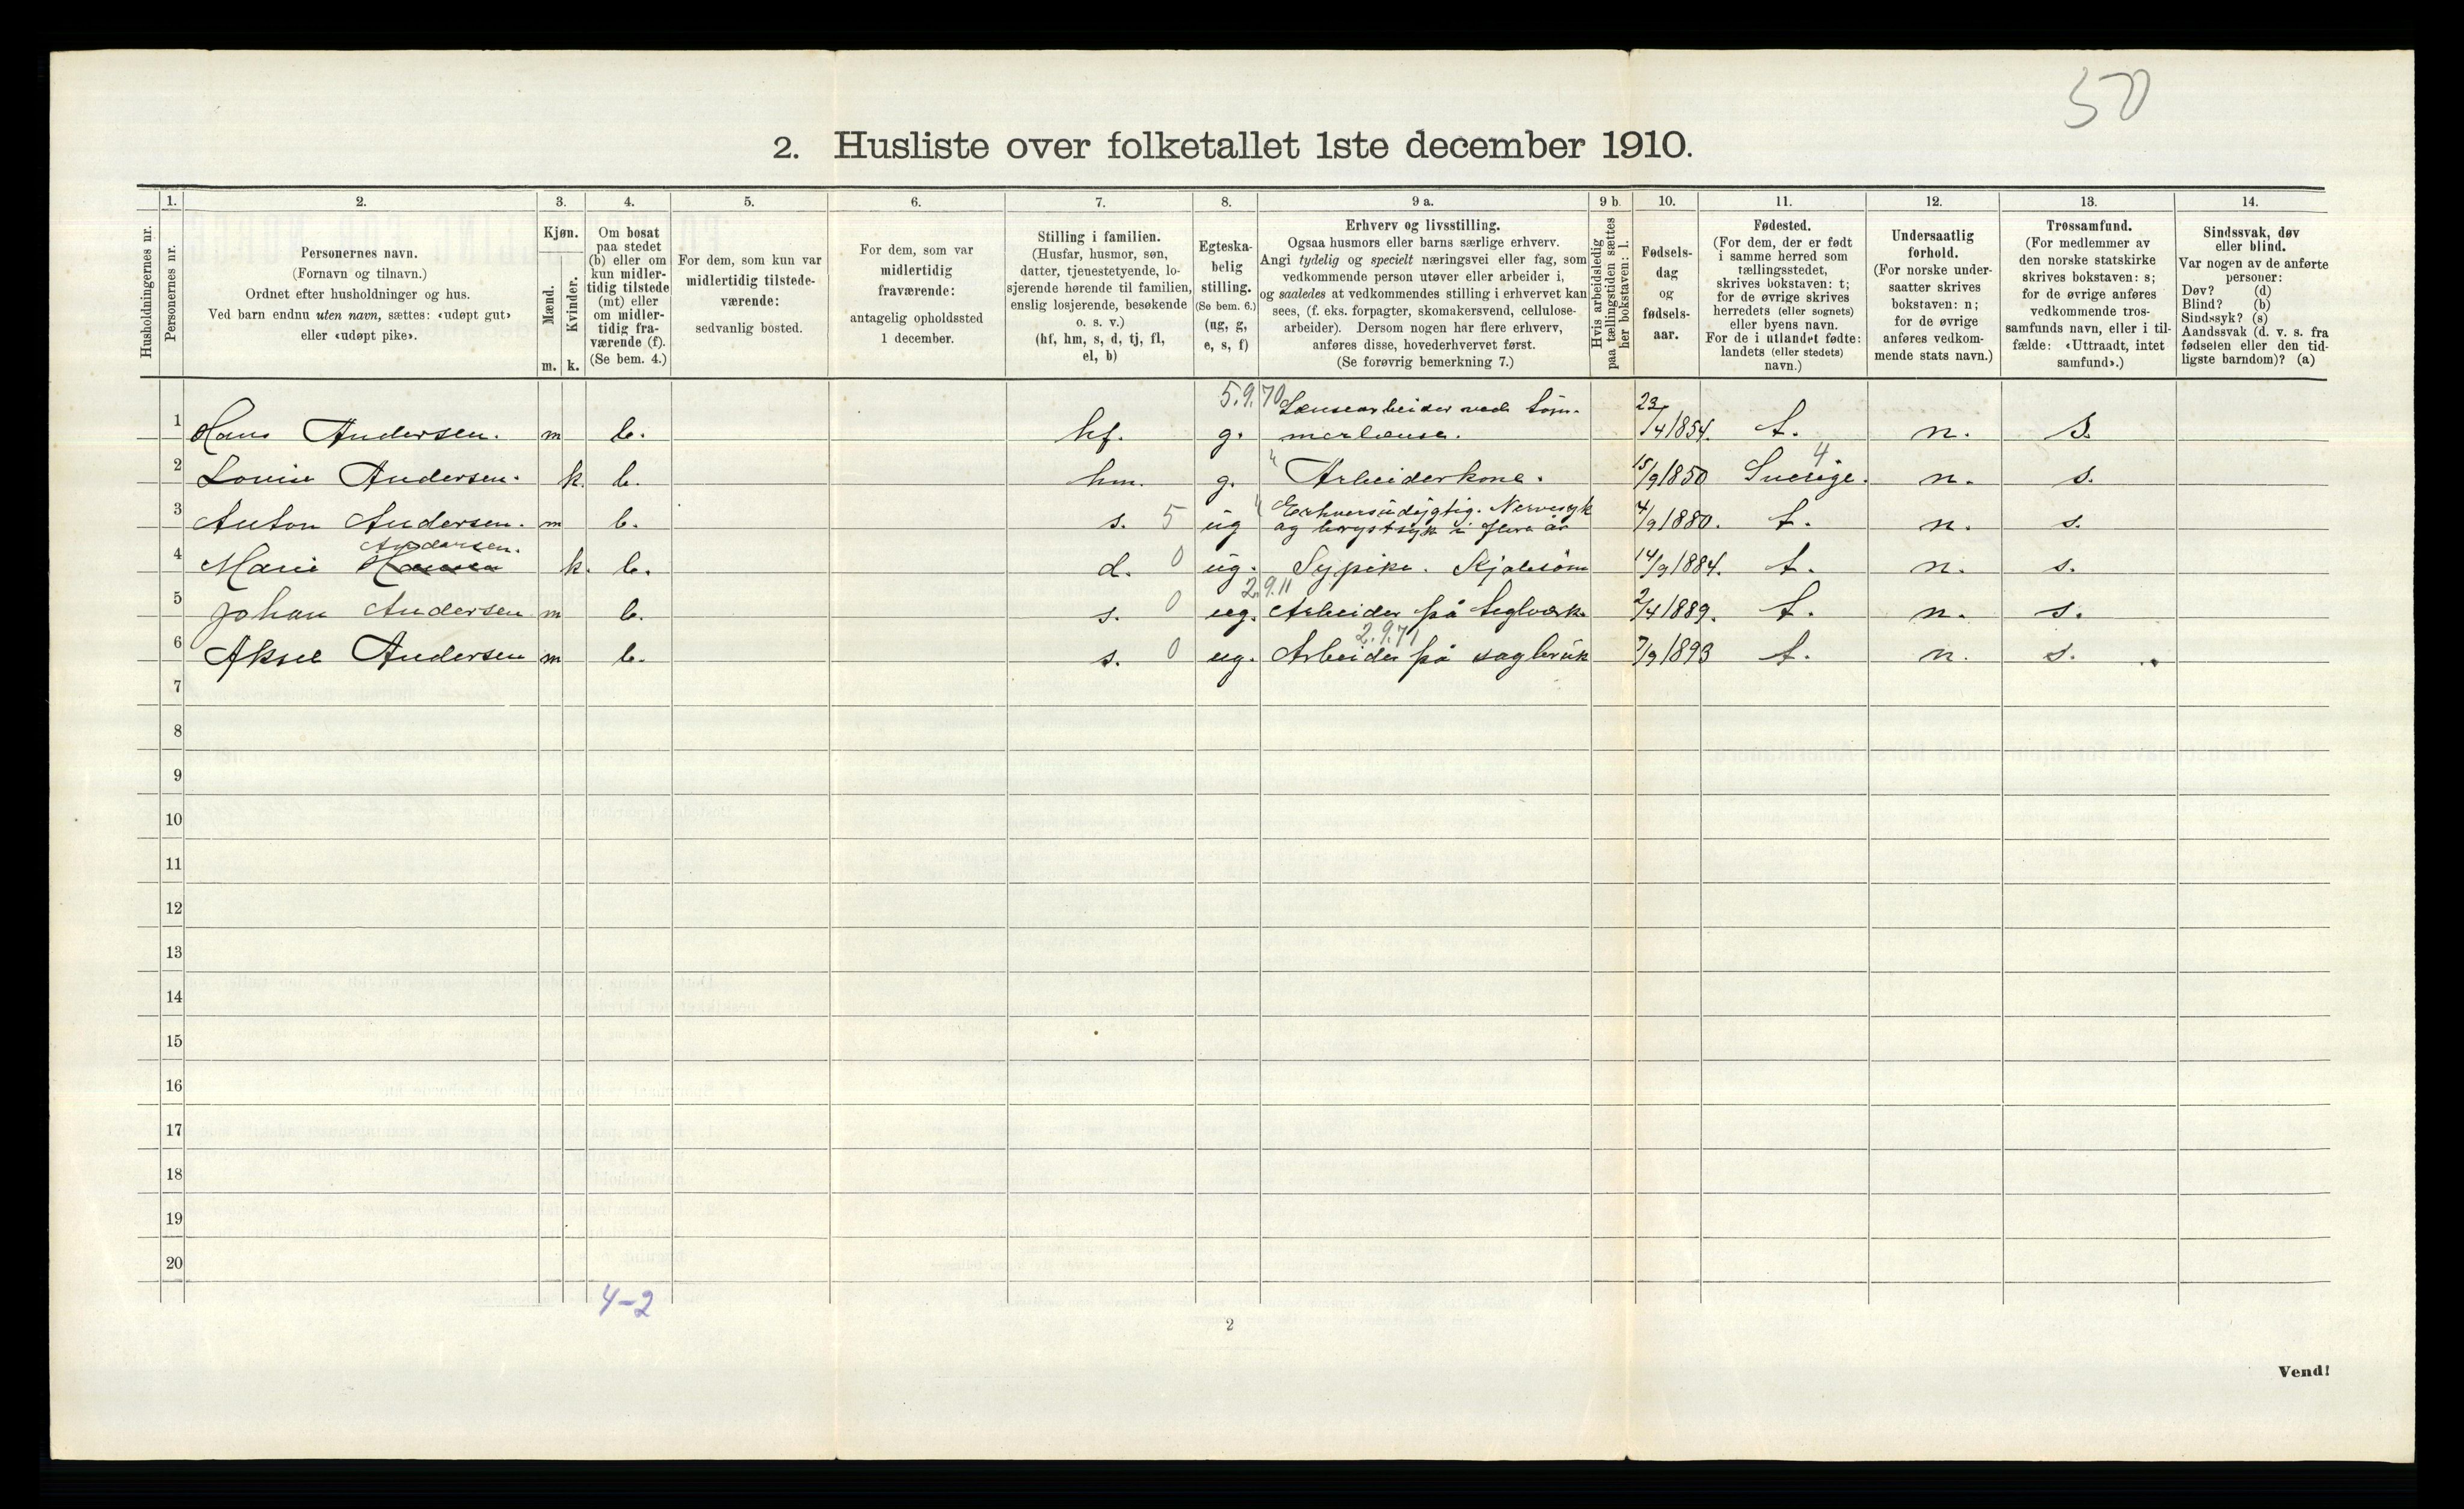 50
2. Husliste over folketallet 1ste december 1910.
Husholdningernes nr.
1.
Personernes nr.
2.
Personernes navn.
(Fornavn og tilnavn.)
Ordnet efter husholdninger og hus.
Ved barn endnu uten navn, sættes: «udøpt gut»
eller «udøpt pike».
3.
Kjøn.
Mænd.
Kvinder.
m. k.
4.
Om bosat
paa stedet
(b) eller om
kun midler-
tidig tilstede
(mt) eller
om midler-
tidig fra-
værende (f).
(Se bem. 4.)
5.
For dem, som kun var
midlertidig tilstede-
værende:
sedvanlig bosted.
6.
For dem, som var
midlertidig
fraværende:
antagelig opholdssted
1 december.
7.
Stilling i familien.
(Husfar, husmor, søn,
datter, tjenestetyende, lo-
sjerende hørende til familien,
enslig losjerende, besøkende
o. s. v.)
(hf, hm, s, d, tj, fl,
el, b)
8.
Egteska-
belig
stilling.
(Se bem. 6.)
(ug, g,
e, s, f)
9 a.
Erhverv og livsstilling.
Ogsaa husmors eller barns særlige erhverv.
Angi tydelig og specielt næringsvei eller fag, som
vedkommende person utøver eller arbeider i,
og saaledes at vedkommendes stilling i erhvervet kan
sees, (f. eks. forpagter, skomakersvend, cellulose-
arbeider). Dersom nogen har flere erhverv,
anføres disse, hovederhvervet først.
(Se forøvrig bemerkning 7.)
9 b.
Hvis arbeidsledig
paa tællingstiden sættes
her bokstaven: l.
10.
Fødsels-
dag
og
fødsels-
aar.
11.
Fødested.
(For dem, der er født
i samme herred som
tællingsstedet,
skrives bokstaven: t;
for de øvrige skrives
herredets (eller sognets)
eller byens navn.
For de i utlandet fødte:
landets (eller stedets)
navn.)
12.
Undersaatlig
forhold.
(For norske under-
saatter skrives
bokstaven: n;
for de øvrige
anføres vedkom-
mende stats navn.)
13.
Trossamfund.
(For medlemmer av
den norske statskirke
skrives bokstaven: s;
for de øvrige anføres
vedkommende tros-
samfunds navn, eller i til-
fælde: «Uttraadt, intet
samfund».)
14.
Sindssvak, døv
eller blind.
Var nogen av de anførte
personer:
Døv? (d)
Blind? (b)
Sindssyk? (s)
Aandssvak (d. v. s. fra
fødselen eller den tid-
ligste barndom)? (a)
5.9.70 Lænsearbeider ved tøm- 23
1 Hans Andersen. m b. hf. g. merlænse. /4 1854. t. n. s.
2 Louise Andersen. k. b. hm. g. " Arbeiderkone. 15/9 1850 Sverige. 4 n. s.
" Eerhversüdygtig. Nervesyk
3 Anton Andersen. m b. s. 5 ug og brystsyk i flere år 4/9 1880. t. n. s.
Andersen.
4 Marie Hansen k. b. d. 0 ug. Sypike. Kjolesøm 14/9 1884. t. n. s.
2.9.11
5 Johan Andersen m b. s. 0 ug. Arbeider på teglværk. 2/4 1889. t. n. s.
2.9.71
6 Aksel Andersen m b. s. 0 ug. Arbeider på sagbrük 7/9 1893 t. n. s.
7
8
9
10
11
12
13
14
15
16
17
18
19
20
4-2
2
Vend!